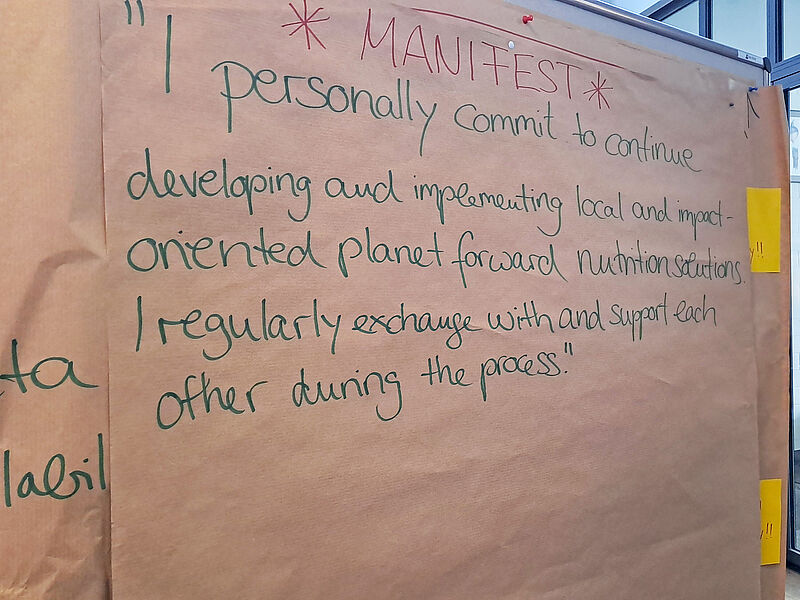 * MANIFEST *
"I personally commit to continue
developing and implementing local and impact-
oriented planet forward nutrition solutions.
I regularly exchange with and support each
other during the process."
ta
labil
y!!
!!